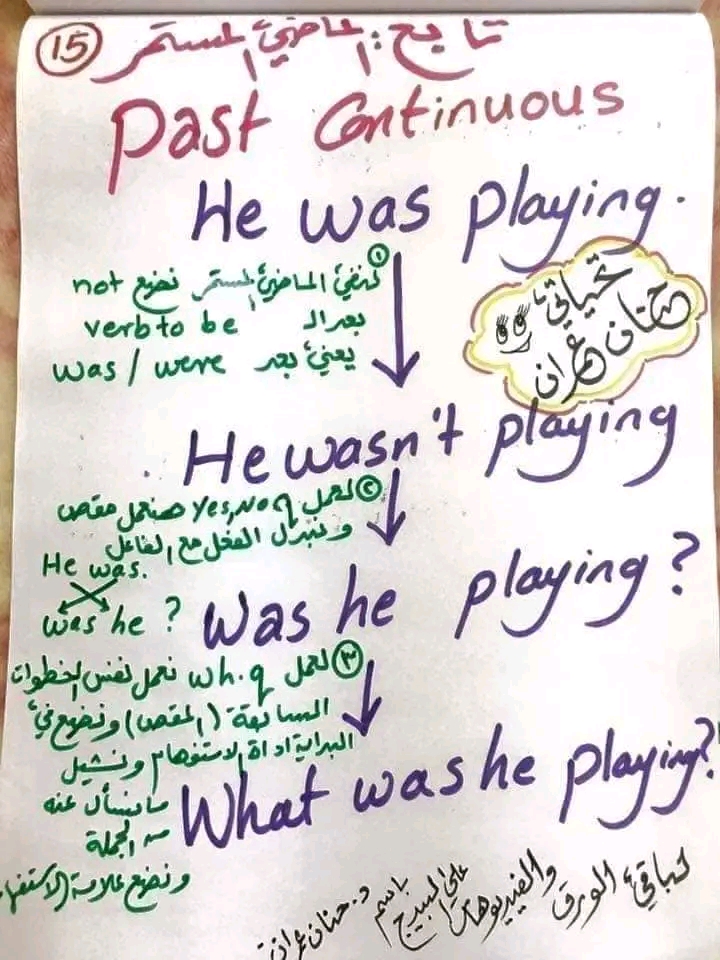 15 تابع: الماضي المستمر
Past Continuous
He was playing.
① لنفي الماضي المستمر نضع not
بعد الـ verb to be
يعني بعد was / were
تحياتي
حنان عمران
He wasn't playing
② لعمل Yes, No q هنعمل مقص
ونبدل الفعل مع الفاعل
He was.
was he ?
Was he playing ?
③ لعمل wh. q نعمل نفس الخطوات
السابقة (المقص) ونضع في
البداية اداة الاستفهام ونشيل
ما نسأل عنه
من الجملة
ونضع علامة الاستفها
What was he playing?
لباقي الورق والفيديوهات على البيدج باسم د. حنان عمران